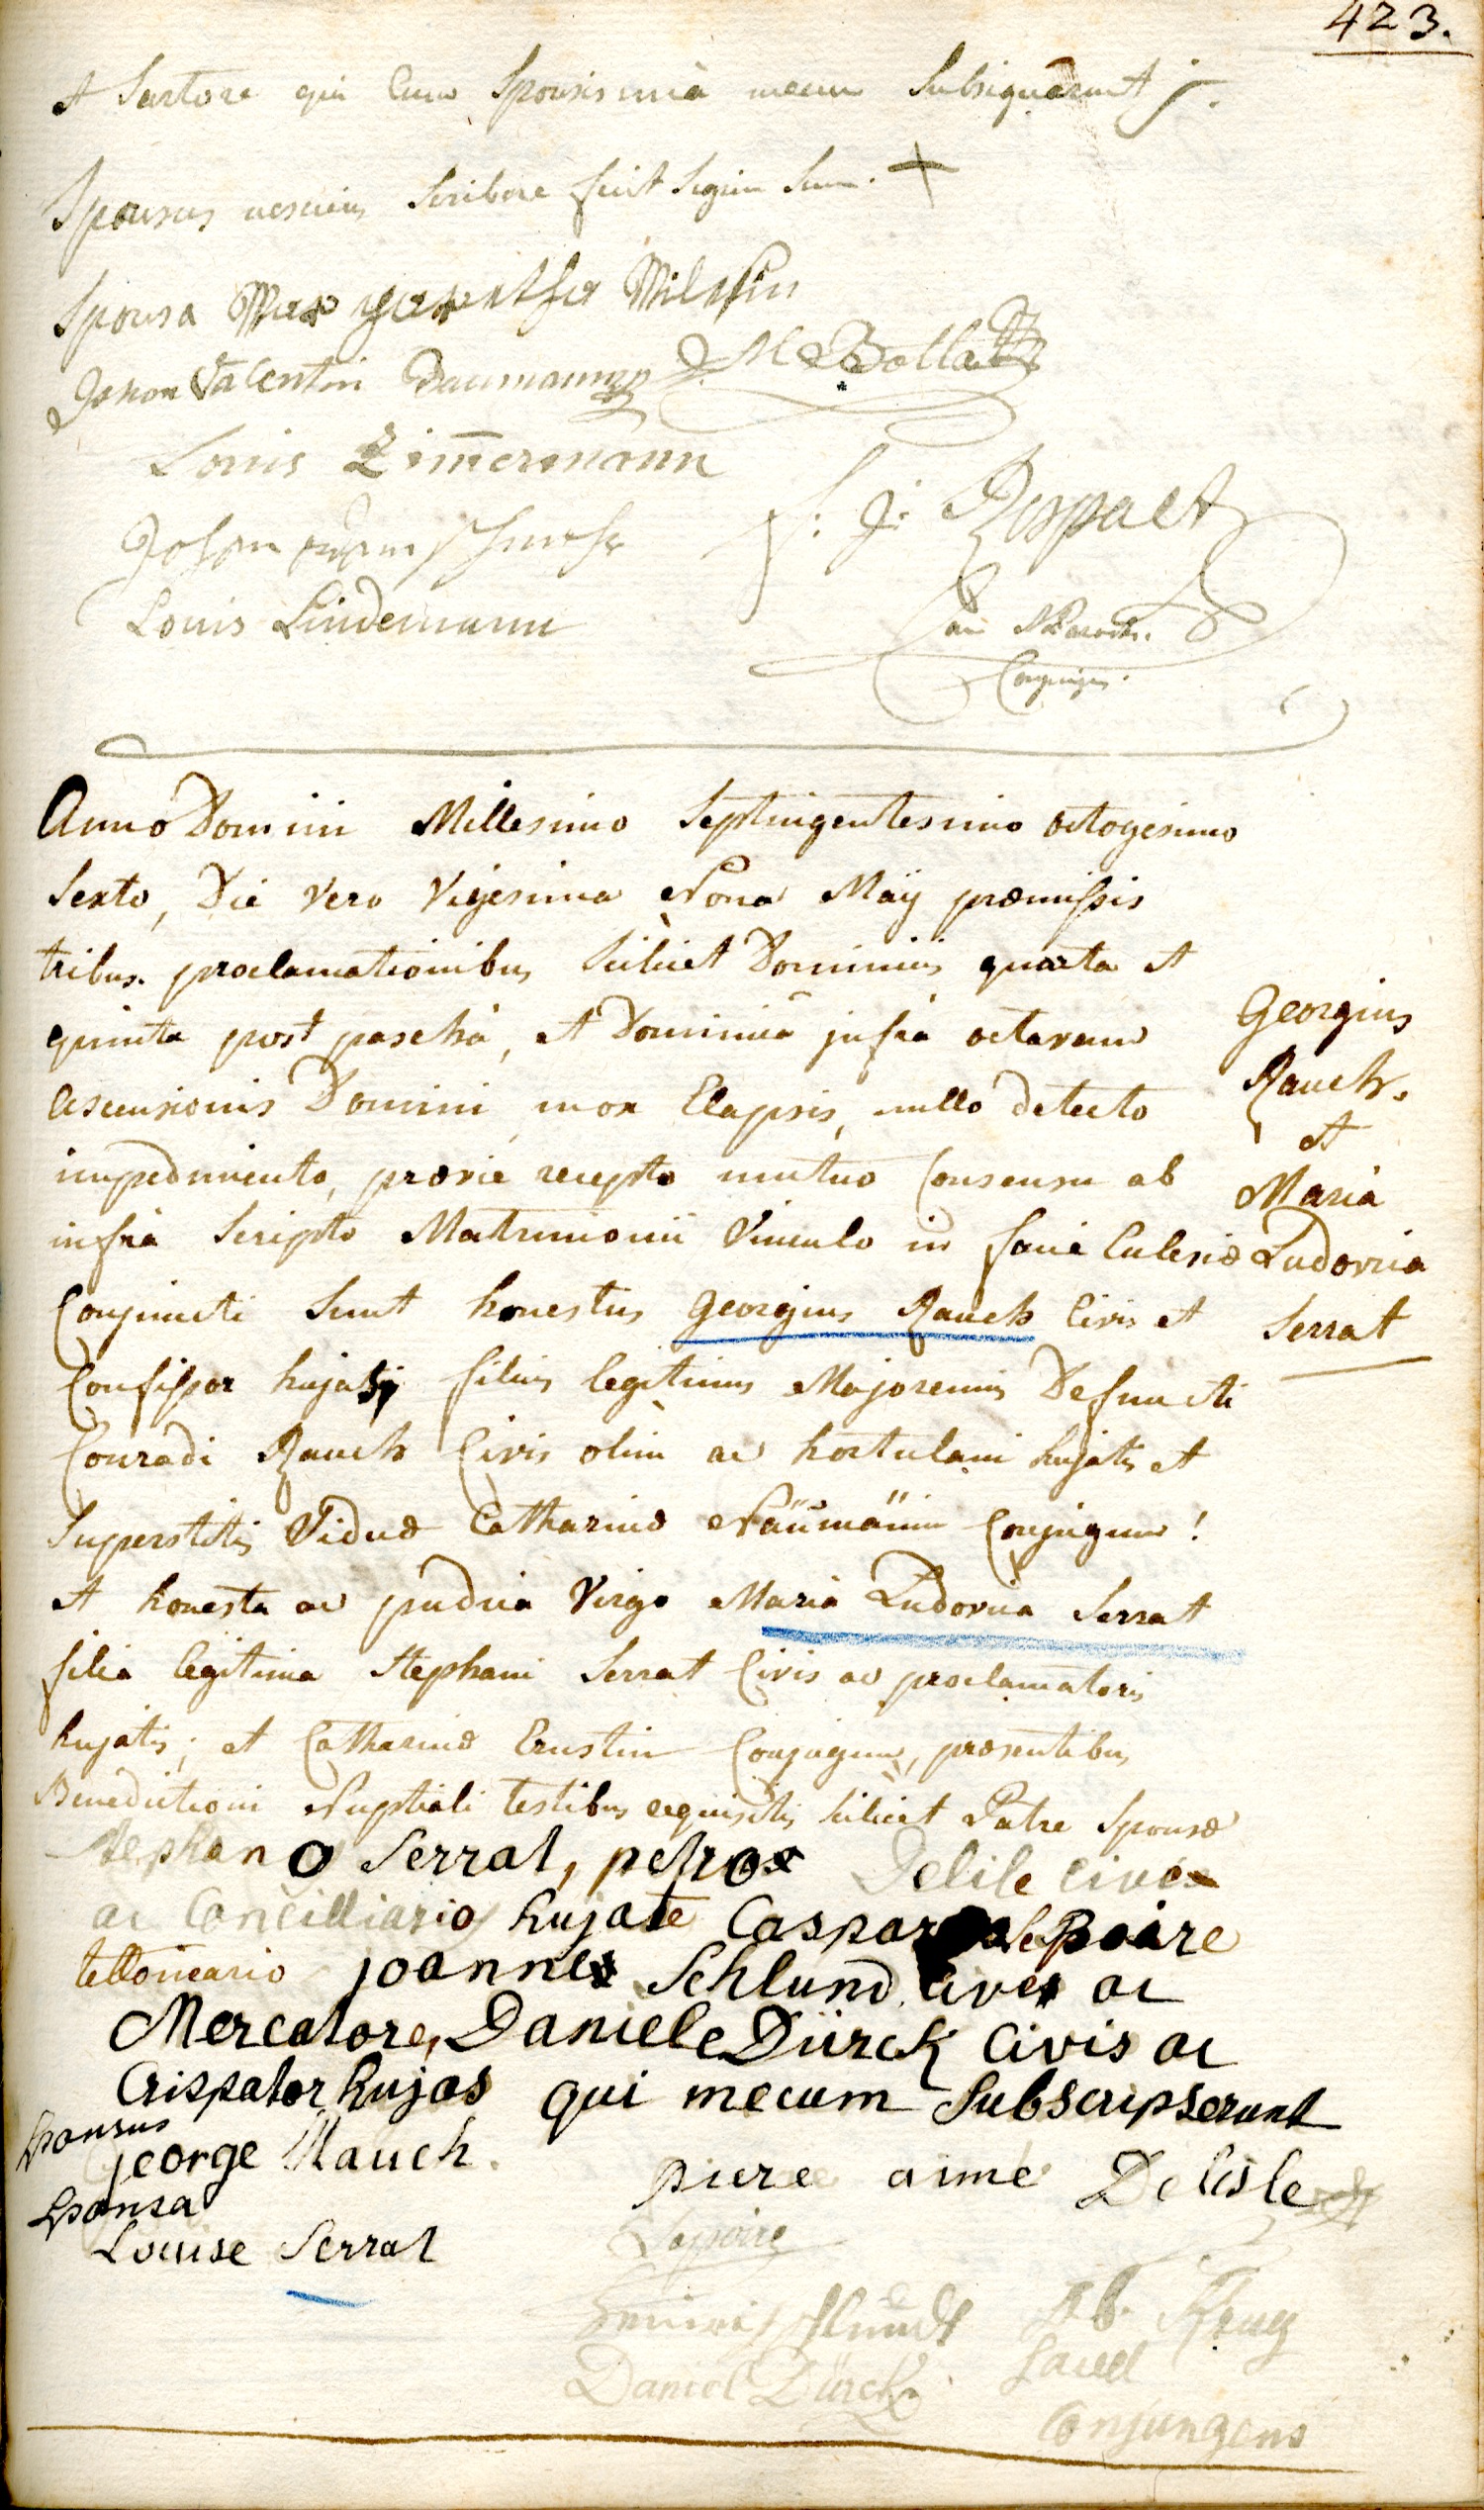 423.
et Sartore qui Cum Sponsis unà mecum Subsignarunt
Sponsus nesciens Scribere fecit Signum Suum. +
Sponsa
Johon Valentin Daumann J. M. Bolla
Louis Zim̄ermann
F. J. Rospaet
Louis Lindemann
Conjungens.
Anno Domini Millesimo Septingentesimo octogesimo
Sexto, Die Vero Vigesima Nona Maÿ præmissis
tribus. proclamationibus Scilicet Dominicis quarta et
quinta post pascha, et Dominica infrà octavam
ascensionis Domini mox Elapsis, nullo detecto
impedimento, prævie recepto mutuo Consensu ab
infrà Scripto Matrimonii Vinculo in facie Eclesiæ
Conjuncti Sunt honestus Georgius Rauch Civis et
Confissor hujas filius legitimus Majorennis Defuncti
Conradi Rauch Civis olim ac hortulani hujatis et
Superstitis Viduæ Catharinæ Naümännin Conjugum!
et honesta ac pudica Virgo Maria Ludovica Serrat
filia legitima Stephani Serrat Civis ac proclamatoris
hujatis; et Catharinæ Ernstin Conjugum, præsentibus
Benedictioni Nuptiali testibus requisitis scilicet Patre Sponsæ
Stephano Serrat, petro Delile cive
ac Concilliario hujate Caspar Lepoire
telloneario joanne Schlund cive ac
Mercatore, Daniele Dürck Civis ac
Crispator hujas qui mecum Subscripserunt
Georgius
Rauch.
et
Maria
Ludovica
Serrat
Sponsus
george Rauch. piere aimé Delisle
Sponsa
Louise Serrat Lepoire
Schlundt
Daniel Dürck
Conjungens